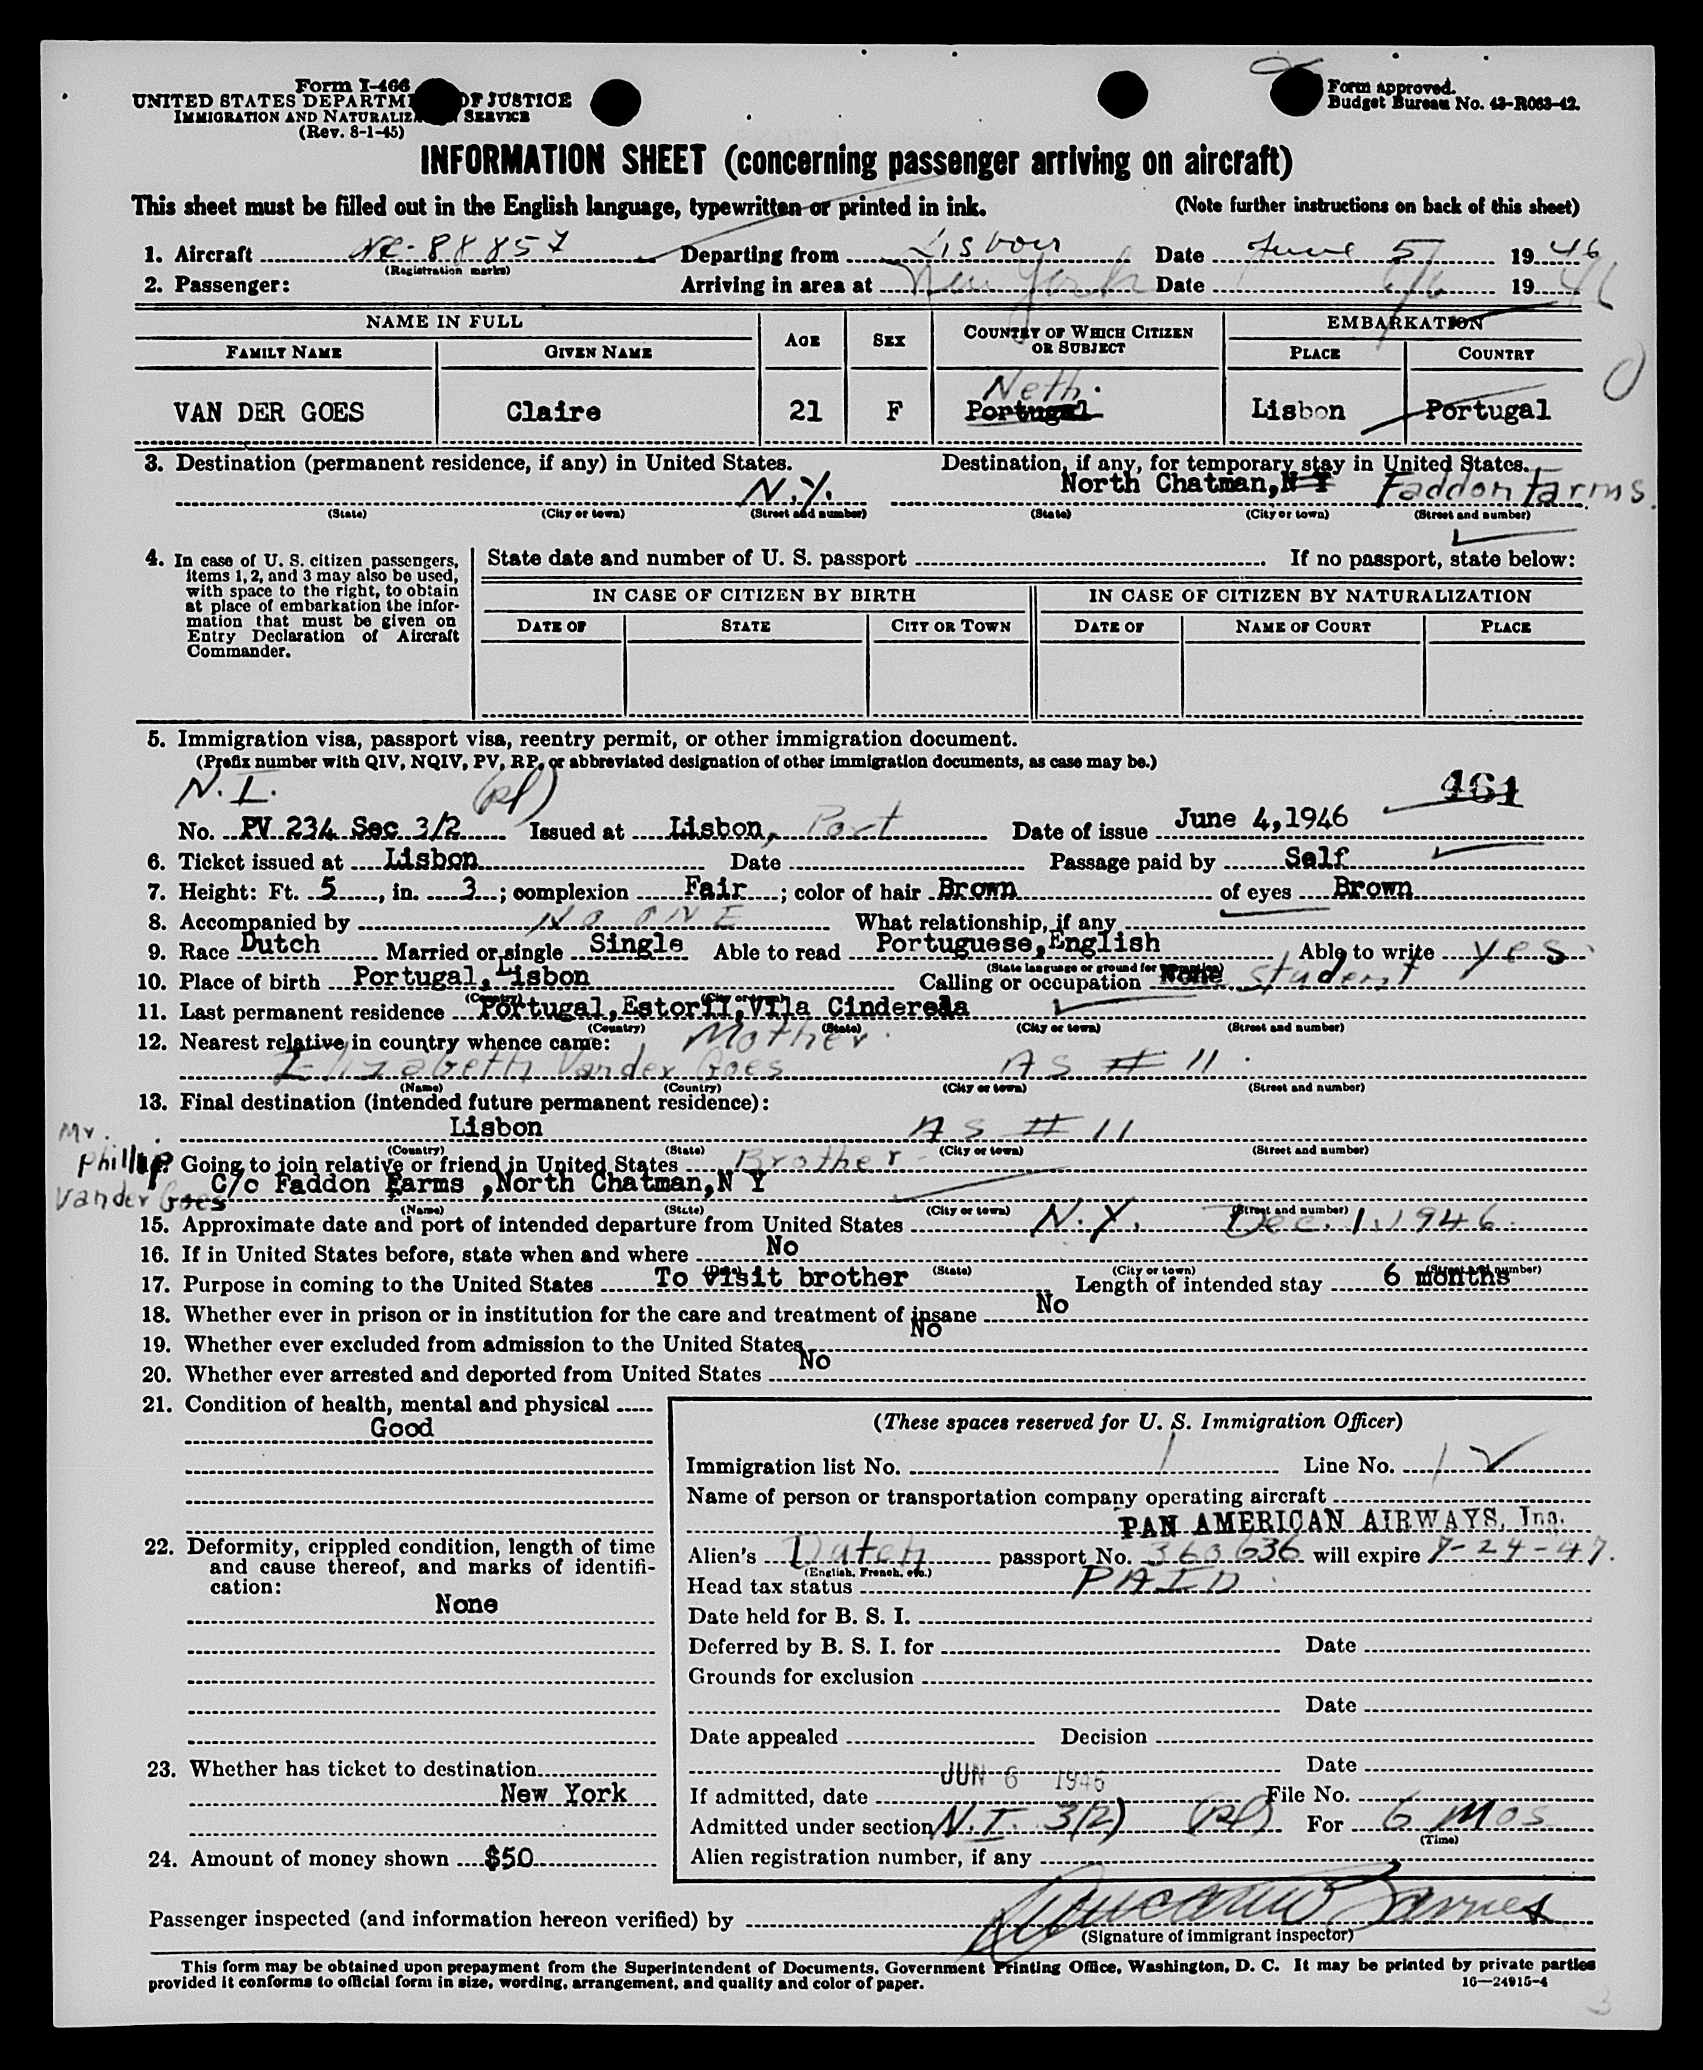 Form I-466
UNITED STATES DEPARTMENT OF JUSTICE
IMMIGRATION AND NATURALIZATION SERVICE
(Rev. 8-1-45)
Form approved.
Budget Bureau No. 43-R063-42.
INFORMATION SHEET (concerning passenger arriving on aircraft)
This sheet must be filled out in the English language, typewritten or printed in ink. (Note further instructions on back of this sheet)
1. Aircraft NC-88857 Departing from Lisbon Date June 5 1946
(Registration marks)
2. Passenger: Arriving in area at New York Date 6/6 1946
NAME IN FULL AGE SEX COUNTRY OF WHICH CITIZEN OR SUBJECT EMBARKATION
FAMILY NAME GIVEN NAME PLACE COUNTRY
Neth.
VAN DER GOES Claire 21 F Portugal Lisbon Portugal
3. Destination (permanent residence, if any) in United States. Destination, if any, for temporary stay in United States.
N.Y. North Chatman, N Y Faddon Farms.
(State) (City or town) (Street and number) (State) (City or town) (Street and number)
4. In case of U. S. citizen passengers, items 1, 2, and 3 may also be used, with space to the right, to obtain at place of embarkation the information that must be given on Entry Declaration of Aircraft Commander.
State date and number of U. S. passport If no passport, state below:
IN CASE OF CITIZEN BY BIRTH IN CASE OF CITIZEN BY NATURALIZATION
DATE OF STATE CITY OR TOWN DATE OF NAME OF COURT PLACE
5. Immigration visa, passport visa, reentry permit, or other immigration document.
(Prefix number with QIV, NQIV, PV, RP, or abbreviated designation of other immigration documents, as case may be.)
N.I. 461
No. PV 234 Sec 3/2 Issued at Lisbon, Port Date of issue June 4,1946
6. Ticket issued at Lisbon Date Passage paid by Self
7. Height: Ft. 5, in. 3; complexion Fair; color of hair Brown of eyes Brown
8. Accompanied by NO ONE What relationship, if any
9. Race Dutch Married or single Single Able to read Portuguese,English Able to write Yes
(State language or ground for exemption)
10. Place of birth Portugal, Lisbon Calling or occupation None Student
(Country) (City or town)
11. Last permanent residence Portugal,Estoril,Vila Cinderela
(Country) (State) (City or town) (Street and number)
12. Nearest relative in country whence came: Mother
Elizabeth Vander Goes AS # 11
(Name) (Country) (City or town) (Street and number)
13. Final destination (intended future permanent residence):
Lisbon AS # 11
(Country) (State) (City or town) (Street and number)
Mr. Phillip Vander Goes
Going to join relative or friend in United States Brother
C/o Faddon Farms ,North Chatman,N Y
(Name) (State) (City or town) (Street and number)
15. Approximate date and port of intended departure from United States N.Y. Dec. 1, 1946.
16. If in United States before, state when and where No
(State) (City or town) (Street and number)
17. Purpose in coming to the United States To visit brother Length of intended stay 6 months
18. Whether ever in prison or in institution for the care and treatment of insane No
19. Whether ever excluded from admission to the United States No
20. Whether ever arrested and deported from United States No
21. Condition of health, mental and physical
Good
22. Deformity, crippled condition, length of time and cause thereof, and marks of identification:
None
23. Whether has ticket to destination
New York
24. Amount of money shown $50
(These spaces reserved for U. S. Immigration Officer)
Immigration list No. 1 Line No. 1
Name of person or transportation company operating aircraft
PAN AMERICAN AIRWAYS, Inc.
Alien's Dutch passport No. 360636 will expire 7-24-47.
(English, French, etc.)
Head tax status PAID
Date held for B. S. I.
Deferred by B. S. I. for Date
Grounds for exclusion
Date
Date appealed Decision
Date
If admitted, date JUN 6 1946 File No.
Admitted under section N.I. 3(2) For 6 Mos
(Time)
Alien registration number, if any
Passenger inspected (and information hereon verified) by
(Signature of immigrant inspector)
This form may be obtained upon prepayment from the Superintendent of Documents, Government Printing Office, Washington, D. C. It may be printed by private parties
provided it conforms to official form in size, wording, arrangement, and quality and color of paper. 16—24915-4